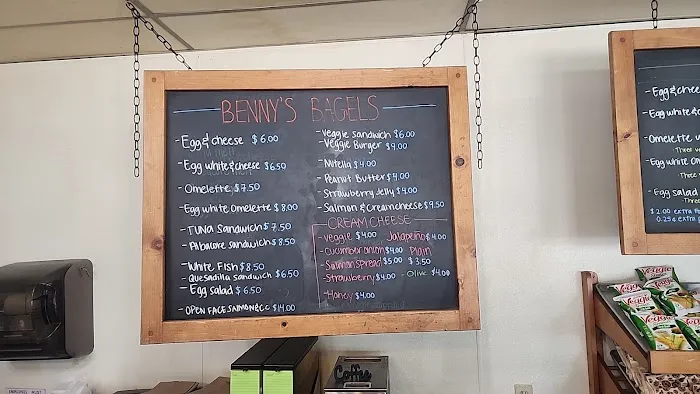 BENNY'S BAGELS
- Egg & cheese $6.00
- Egg white & cheese $6.50
- Omelette $7.50
- Egg white Omelette $8.00
- TUNA Sandwich $7.50
- Albacore sandwich $8.50
- White Fish $8.50
- Quesadilla sandwich $6.50
- Egg salad $6.50
- OPEN FACE SALMON & CC $14.00
- Veggie sandwich $6.00
- Veggie Burger $9.00
- Nutella $4.00
- Peanut Butter $4.00
- Strawberry Jelly $4.00
- Salmon & Creamcheese $9.50
CREAM CHEESE
- veggie $4.00 Jalapeño $4.00
- cucumber onion $4.00 Plain
- Salmon spread $5.00 $3.50
- Strawberry $4.00 - Olive $4.00
- Honey $4.00
- Egg & chee
- Egg white &
- Omelette w
Three v
- Egg white Om
Three
- Egg salad
Three
$2.00 extra fo
0.25¢ extra
Veggie
Veggie
Veggie
Coffee